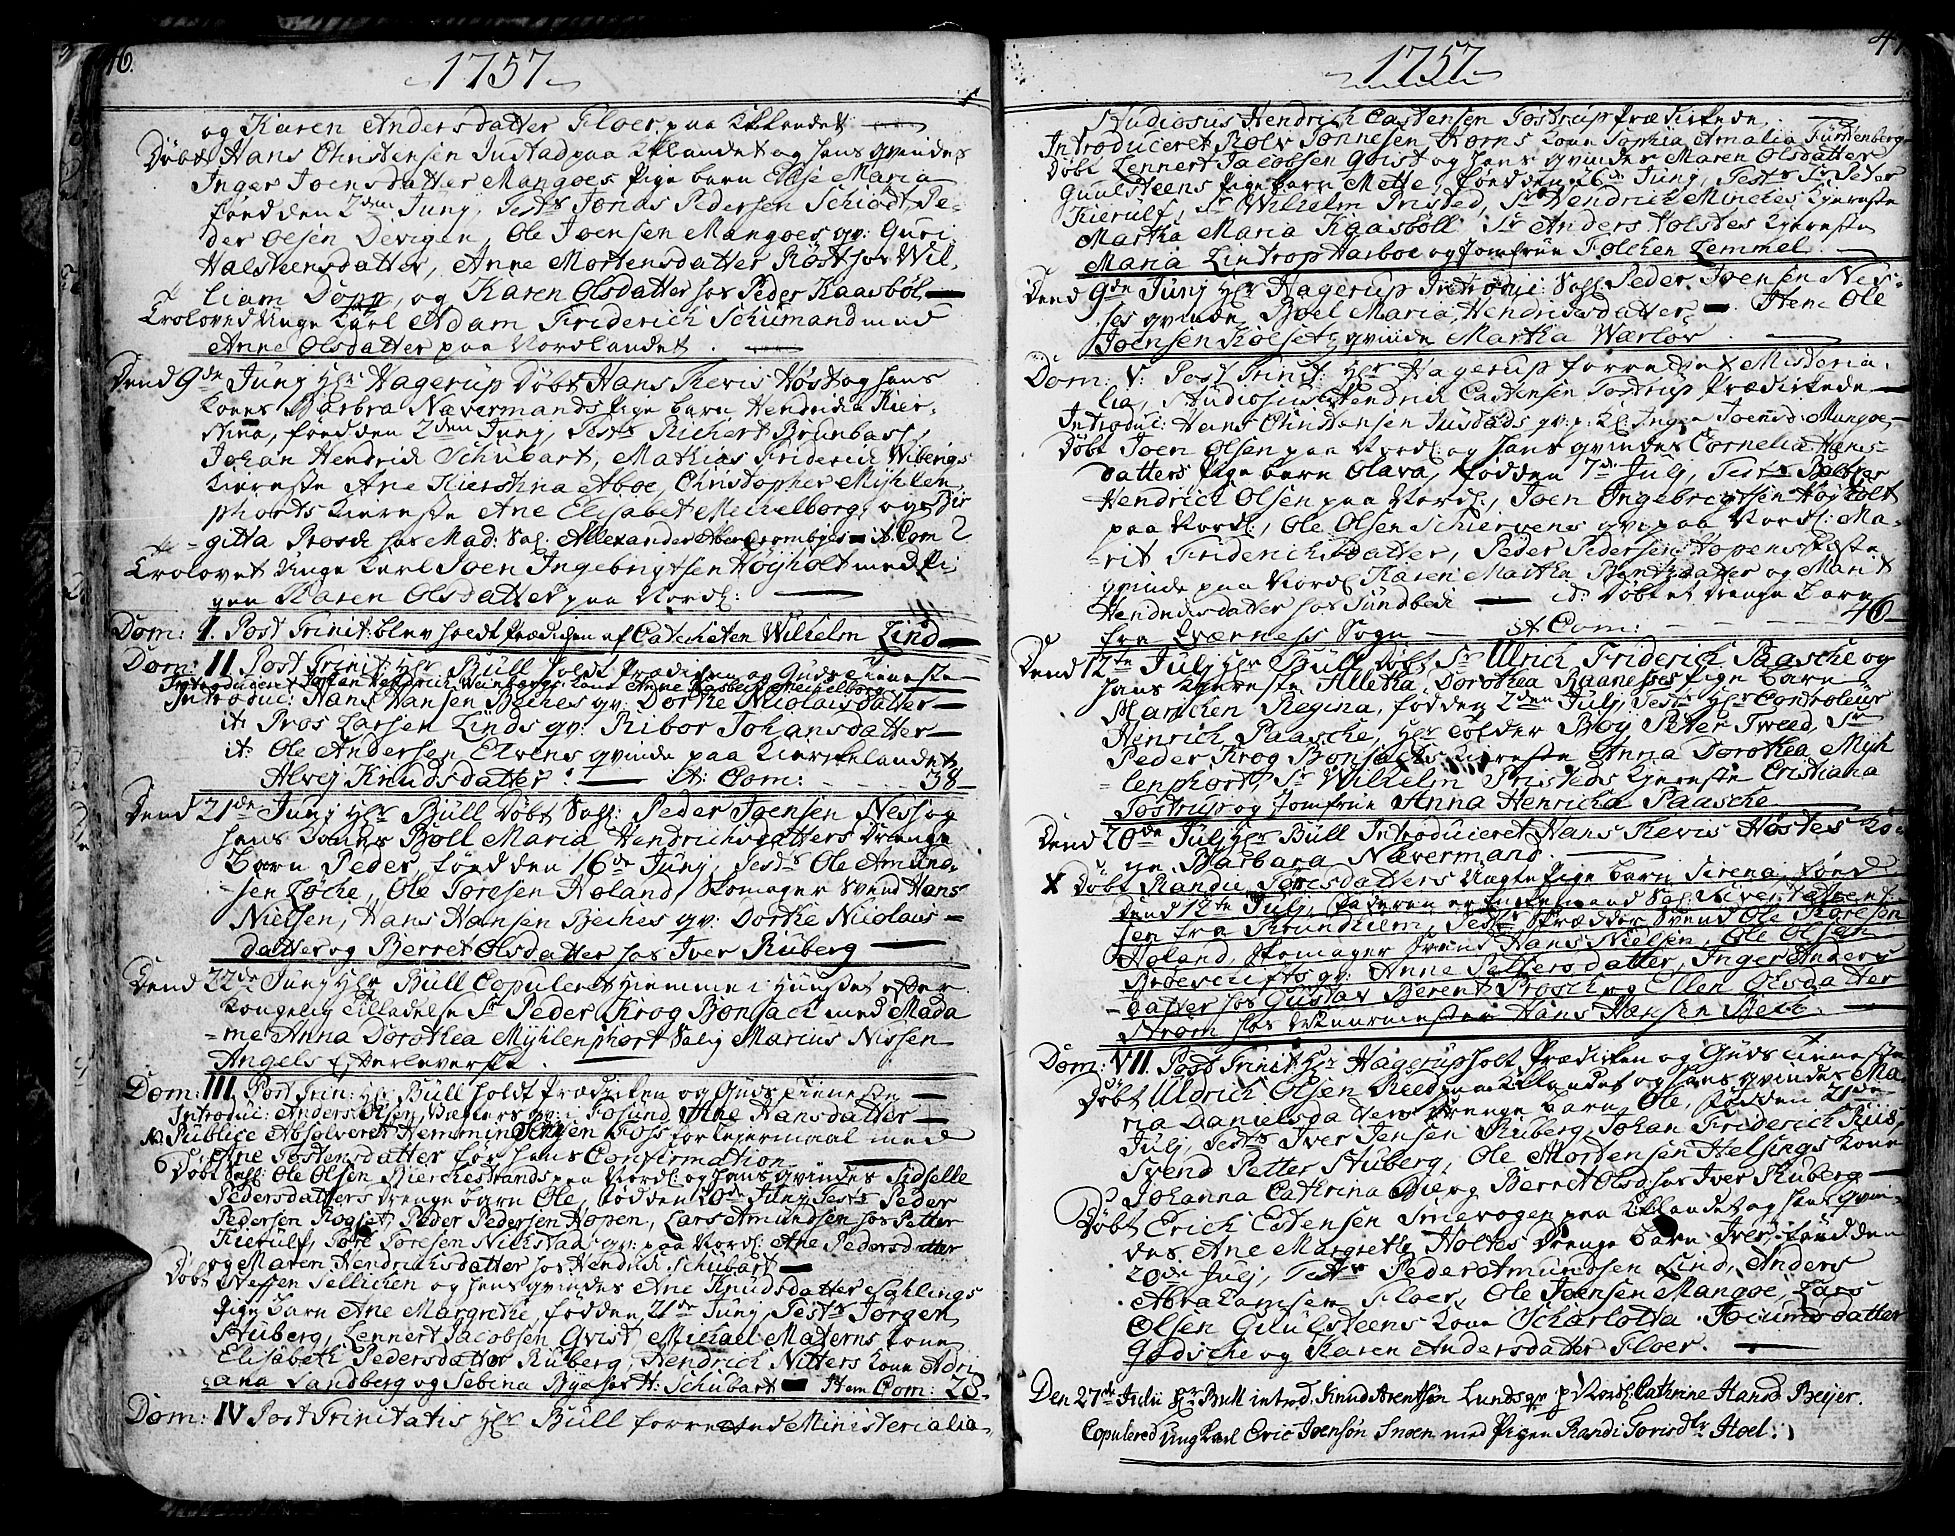 46.
1757
og Karen Andersdatter Floer paa Kklandet
Døbt Hans Christensen Justad paa Kklandet og hans qvindes
Inger Joensdatter Mangoes Pige barn Else Maria
fød den 2den Junj, Test: Jonas Pedersen Schiødt, Pe-
der Olsen Devigen, Ole Joensen Mangoes qv: Guri
Halsteensdatter, Anne Mortensdatter Røst hos Wil-
liam Dopp, og Karen Olsdatter hos Peder Kaasbøl
Troloved Unge Karl Adam Friderich Schumand med
Anne Olsdatter paa Nordlandet.
Dend 9de Junj Hr Hagerup Døbt Hans Thevis Høst og hans
Kones Barbra Nævermands Pige barn Hendricha Kier-
stina, fød den 2den Junj, Test: Richert Brunbass,
Johan Hendrich Schubart, Mathias Friderich Wibergs
Kiereste Ane Kierstina Aboe, Christopher Mÿhlen-
phorts Kiereste Ane Elisabet Meckelborg, og Bir
gitta Prosch hos Mad: Sal: Allexander Abercrombyes it Com 2
Trolovet Unge Karl Joen Ingebrigtsen Høyholt med Pi-
gen Karen Olsdatter paa Nordl:
Dom: I. Post Trinit: blev holdt Prædichen af Catecheten Wilhelm Lind
Dom: II Post Trinit: Hr Bull holdt Prædichen og Guds tieneste
Introduceret Johan Hendrich Weinbergs kone Anne Elisabeth Meckelborg
Introduc: Hans Hansen Beches qv: Dorthe Nicolaisdatter
it: Pros Larsen Linds qv: Ribor Johansdatter
it: Ole Andersen Elvens qvinde paa Kierkelandet
Alvej Knudsdatter: A: Com: 38
Dend 21de Junj Hr Bull Døbt Sal: Peder Joensen Ness og
hans Kones Boll Maria Hendrichsdatters Drenge
Barn Peder, fød den 16de Junj, Test: Ole Amund-
sen Løche, Ole Toresen Holand, Skomager Svend Hans
Nielsen, Hans Hansen Beches qv: Dorthe Nicolais-
datter og Berret Olsdatter hos Iver Ruberg
Dend 22de Junj Hr Bull Copuleret hiemme i Huuset efter
Kongelig Tilladelse Sr Peder Krog Bonsack med Mada
me Anna Dorothea Mÿhlenphort Salig Marcus Nissen
Angels Efterleverske.
Dom: III Post Trin: Hr Bull holdt Prædichen og Guds tieneste
Introduc: Anders Olsen Bæchers qv: i Fosund Ane Hansdatter
Publice Absolveret Hemmin Jensen Foss for Leiermaal med
Ane Tostensdatter før hans Confirmation
Døbt Sal: Ole Olsen Bierchestrands paa Nordl: og hans qvindes Sidselle
Pedersdatters Drenge barn Ole, fød den 20de Junj Test: Peder
Pedersen Rogset, Peder Pedersen Hopen, Lars Amundsen hos Petter
Kierulf, Tore Toresen Nichstad qv: paa Nordl: Ane Pedersdatter
og Maren Hendrichsdatter hos Hendrich Schubart
Døbt Steffen Sellichen og hans qvindes Ane Knudsdatter Sahlings
Pige barn Ane Margrethe, fød den 21de Junj Test: Jørgen
Stuberg, Lennert Jacobsen Qvist Michael Materns kone
Elisabeth Pedersdatter Ruberg, Hendrich Nitters kone Adri
ana Landberg og Sebina Bye hos H: Schubart Item Com: 28.
Dom: IV Post Trinitatis Hr Bull forrettede Ministerialia
47
1757
Studiosus Hendrich Castensen Tostrup Prædichede
Introduceret Rolv Tønnesen Horns kone Sophia Amalia Fürstenberg
Døbt Lennert Jacobsen Qvist og hans qvindes Maren Olsdatter
Guulsteens Pige barn Mette, fød den 26de Junj, Test: Sr Peder
Kierulf, Sr Wilhelm Fristed, Sr Hendrich Minches Kiereste
Martha Maria Kaasbøll Sr Anders Holstes Kiereste
Maria Lintrop Harboe og Jomfrue Folchen Lemmel
Dend 9de Junj Hr Hagerup Introduc: Sal: Peder Joensen Nes-
ses qvinde Boel Maria Hendrichsdatter Item Ole
Joensen Kolsets qvinde Martha Wærløs
Dom: V: Post Trinit: Hr Hagerup forrettet Misteria-
lia, Studiosus Hendrich Castensen Tostrup Prædichede
Introduc: Hans Christensen Justads qv: p: Kl: Inger Joensd: Mangoe
Døbt Joen Olsen paa Nordl: og hans qvindes Cornelia Hans-
datters Pige barn Olava, fød den 7de Julj, Test: Petter
Hendrich Olsen paa Nordl:, Joen Ingebrigtsen Høyholt
paa Nordl:, Ole Olsen Schiervens qv: paa Nordl: Ma-
rit Friderichsdatter, Peder Pedersen Hopens Feste
qvinde paa Nordl: Karen Martha Bentzdatter og Marit
Hendrichsdatter hos Sundbech it: Døbt et Drenge barn
fra Qværness Sogn A Com: 46
Dend 12te Julj Hr Bull Døbt Sr Ulrich Friderich Paasche og
hans Kiereste Alletha Dorothea Raanesses Pige barn
Marichen Regina, fød den 2den Julj, Test: Hr Controleur
Henrich Paasche, Hr Tolder Boy Peter Tweed, Sr
Peder Krog Bonsachs Kiereste Anna Dorothea Mÿh
lenphort, Sr Wilhelm Fristeds Kiereste Cristiana
Tostrup og Jomfrue Anna Henricha Paasche
Dend 20de Julj Hr Bull Introduiceret Hans Thevis Høstes Ko
ne Barbara Nævermand
X Døbt Randie Toresdatters Uægte Pige barn Sirena fød
dend 12te Julj, Faderen er Sal: Siver
sen fra Trondhiem, Test: Skrædder Svend Ole Toresen
Holand, Skomager Svend Hans Nielsen, Ole Olsen
qv: Anne Pettersdatter, Inger Anders
datter hos Gustav Berent Prosch og Ellen Olsdatter
Strøm hos Skaarmester Hans Hansen Bech.
Dom: VII Post Trinit Hr Hagerup holt Prædichen og Guds tieneste
Døbt Uldrich Olsen Reed paa Kklandet og hans qvindes Ma
ria Danielsdatters Drenge barn Ole, fød den 21de
Julj, Test: Iver Jensen Ruberg, Johan Friderich Kiis,
Svend Petter Stuberg, Ole Mortensen Helsings kone
Johanna Cathrina Bie og Berret Olsd: hos Iver Ruberg
Døbt Erich Estensen Smevogen paa Kklandet og hans qvin-
des Ane Margrethe Holtes Drenge barn Iver, fød den
20de Julj, Test: Peder Amundsen Lind, Anders
Abrahamsen Floer, Ole Joensen Mangoe, Lars
Olsen Guulsteens kone Scharlotta Jocumsdatter
Godsche og Karen Andersdatter Floer.
Den 27de Julii Hr Bull introd. Knud Arentsøn Lunds qv p Nordl Cathrine Hansd Beyer.
Copulered Ung Karl Eric Joensøn Inden med Pigen Randi Torisdr Hoel.